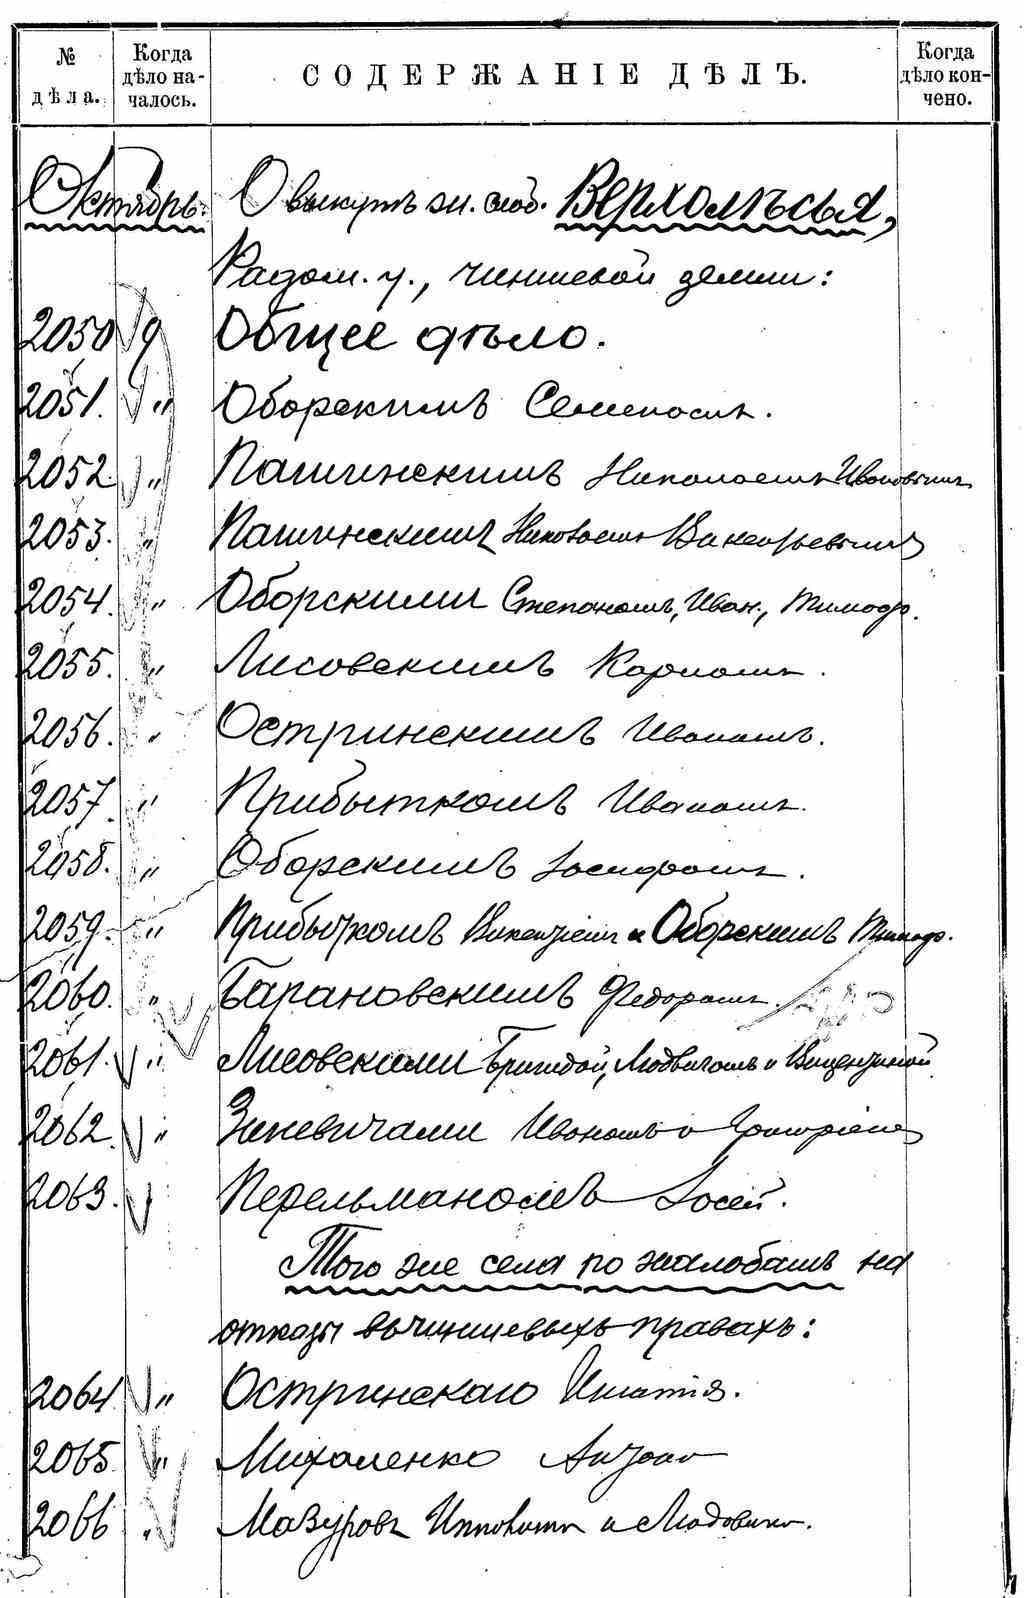 № дѣла.
Когда дѣло на-чалось.
СОДЕРЖАНІЕ ДѢЛЪ.
Когда дѣло кон-чено.
Октябрь. О выкупѣ жит. слоб. Верхолѣсья,
Радом. у., чиншевой земли:
2050 9 Общее дѣло.
2051. " Оборскимъ Семеномъ.
2052. " Пашинскимъ Николаемъ Ивановымъ
2053. " Пашинскимъ Николаемъ Викторьевымъ
2054. " Оборскими Степаномъ, Иван., Тимоф.
2055. " Лисовскимъ Карпомъ.
2056. " Остринскимъ Иваномъ.
2057 " Прибыткомъ Иваномъ.
2058. " Оборскимъ Іосифомъ.
2059. " Прибыткомъ Викентіемъ и Оборскимъ Тимоф.
2060. " Барановскимъ Федоромъ.
2061. " Лисовскими Бригидой, Людвигомъ и Винцентиной
2062. " Зеневичами Иваномъ и Григоріемъ
2063. Перельманомъ Іосей.
Того же села по жалобамъ на
отказы въ чиншевыхъ правахъ:
2064 " Остринскаго Игнатія.
2065. " Михаленко Антона
2066 " Мазуровъ Ипполита и Людовика.